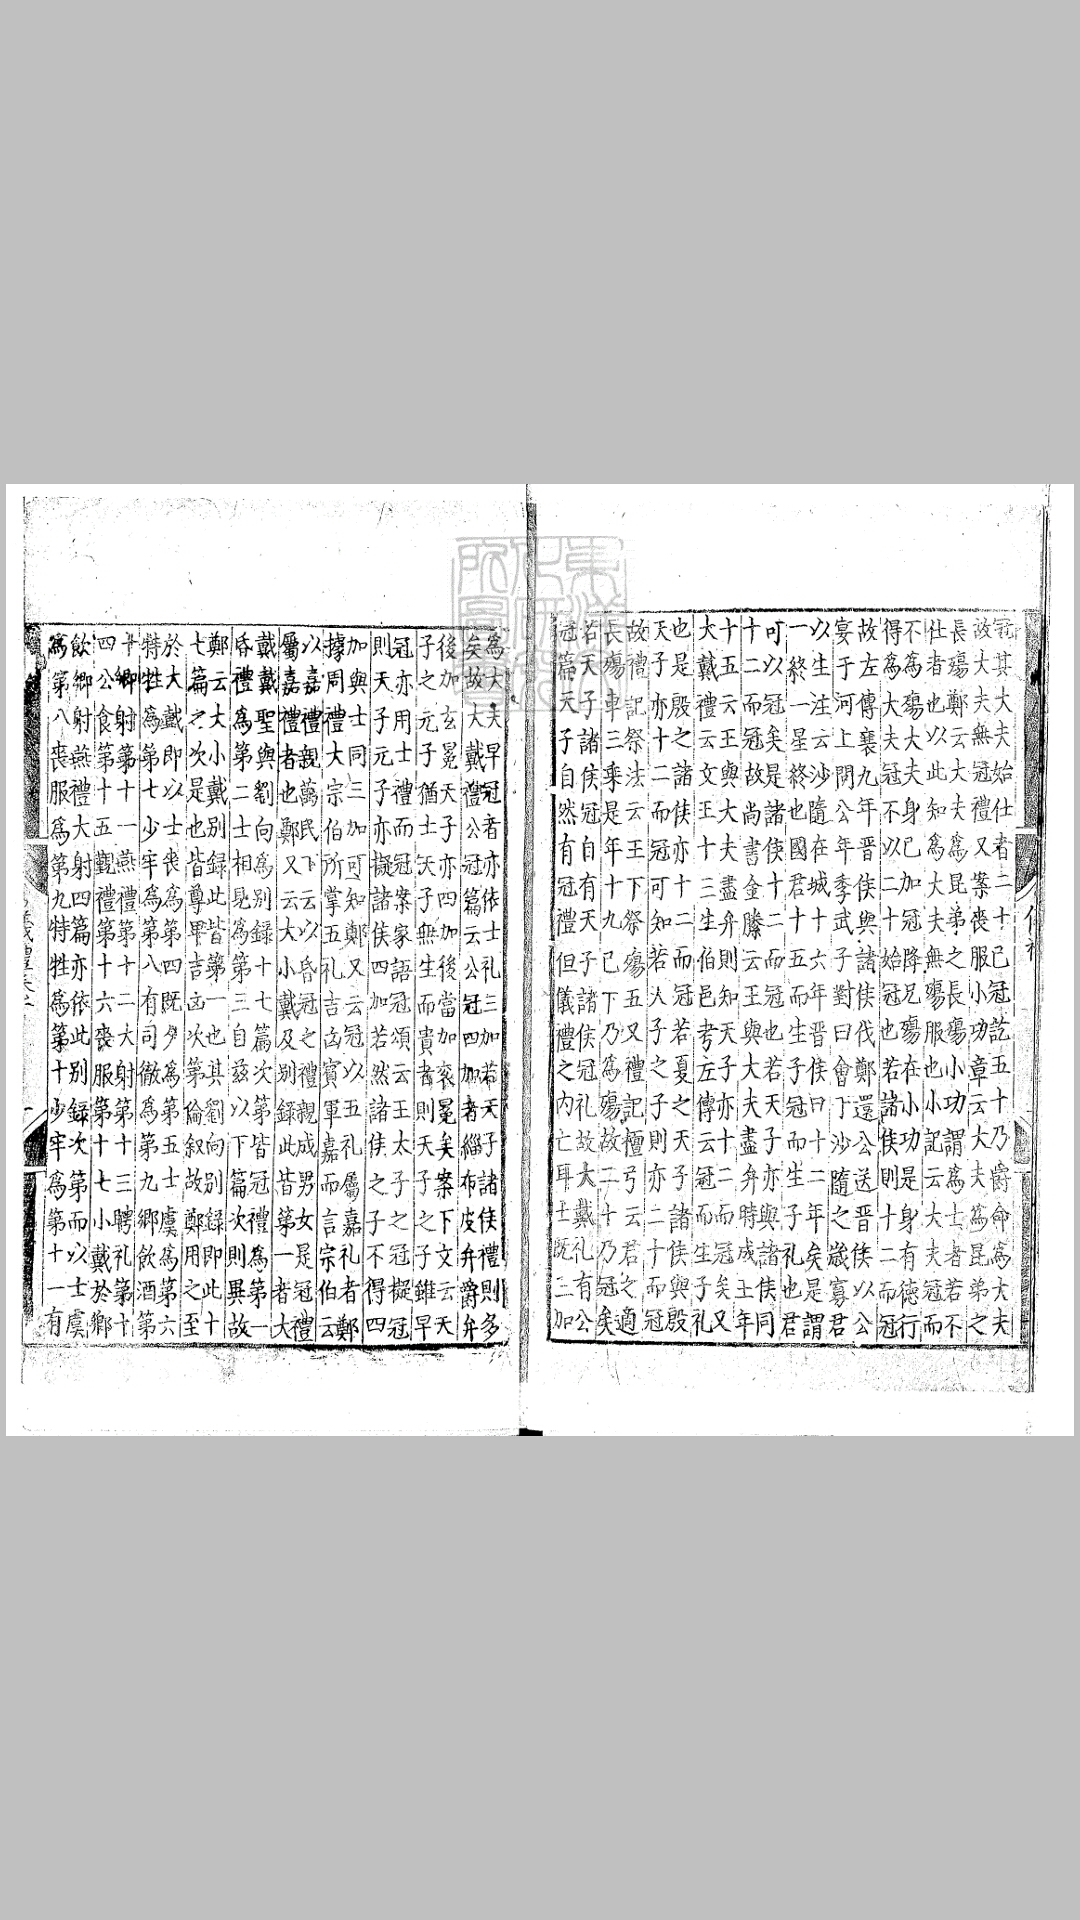 冠其大夫始仕者二十已冠訖五十乃爵命爲大夫
故大夫無冠禮又案喪服小功章云大夫爲昆弟之
長殤鄭云大夫爲昆弟之長殤小功謂爲士者若不
仕者也以此知爲大夫無殤服也小記云大夫冠而
不爲殤大夫身已加冠降兄殤在小功是身有德行
得爲大夫冠不以二十始冠也若諸侯則十二而冠
故左傳襄九年晋侯與諸侯伐鄭還公送晋侯以公
宴于河上問公年季武子對曰會丁沙隨之歲寡君
以生注云沙隨在城十六年晋侯曰十二年矣是謂
一終一星終也國君十五而生子冠而生子礼也君
可以冠矣是諸侯十二而冠也若天子亦與諸侯同
十二而冠故尚書金縢云王與大夫盡弁時成王年
十五云王與大夫盡弁則知天子亦十二而冠矣又
大戴禮云文王十三生伯邑考左傳云冠而生子礼
也是殷之諸侯亦十二而冠若夏之天子諸侯與殷
天子亦十二而冠可知若人子之子則亦二十而冠
故禮記祭法云王下祭殤五又禮記檀弓云君之適
長殤車三乘是年十九已下乃爲殤故二十乃冠矣
若天子諸侯冠自有天子諸侯冠礼故大戴礼有公
冠篇天子自然有冠禮但儀禮之內亡耳士既二加
爲大夫早冠者亦依士礼三加若天子諸侯禮則多
矣故大戴禮公冠篇云公冠四加者緇布皮弁爵弁
後加玄冕天子亦四加後當加衮冕矣案下文云天
子之元子猶士天子無生而貴者則天子之子雖早
冠亦用士禮而冠案家語冠頌云王太子之冠擬冠
則天子元子亦擬諸侯四加若然諸侯之子不得四
加與士同三加可知鄭又云冠以五礼屬嘉礼者鄭
據周禮大宗伯所掌五礼吉凶賓軍嘉而言宗伯云
以嘉禮親萬民下云以昏冠之禮親成男女是冠禮
屬嘉禮者也鄭又云大小戴及別録此皆第一者大
戴戴聖與劉向爲別録十七篇次第皆冠禮爲第一
昏禮爲第二士相見爲第三自兹以下篇次則異故
鄭云大小戴別録此皆第一也其劉向別録即此十
七篇之次是也皆尊卑吉凶次第倫叙故鄭用之至
於大戴即以士喪爲第四既夕爲第五士虞爲第六
特牲爲第七少牢爲第八有司徹爲第九鄉飲酒第
十鄉射第十一燕禮第十二大射第十三聘礼第十
四公食第十五覲禮第十六喪服第十七小戴於鄉
飲鄉射燕禮大射四篇亦依此別録次第而以士虞
爲第八喪服爲第九特牲爲第十少牢爲第十一有